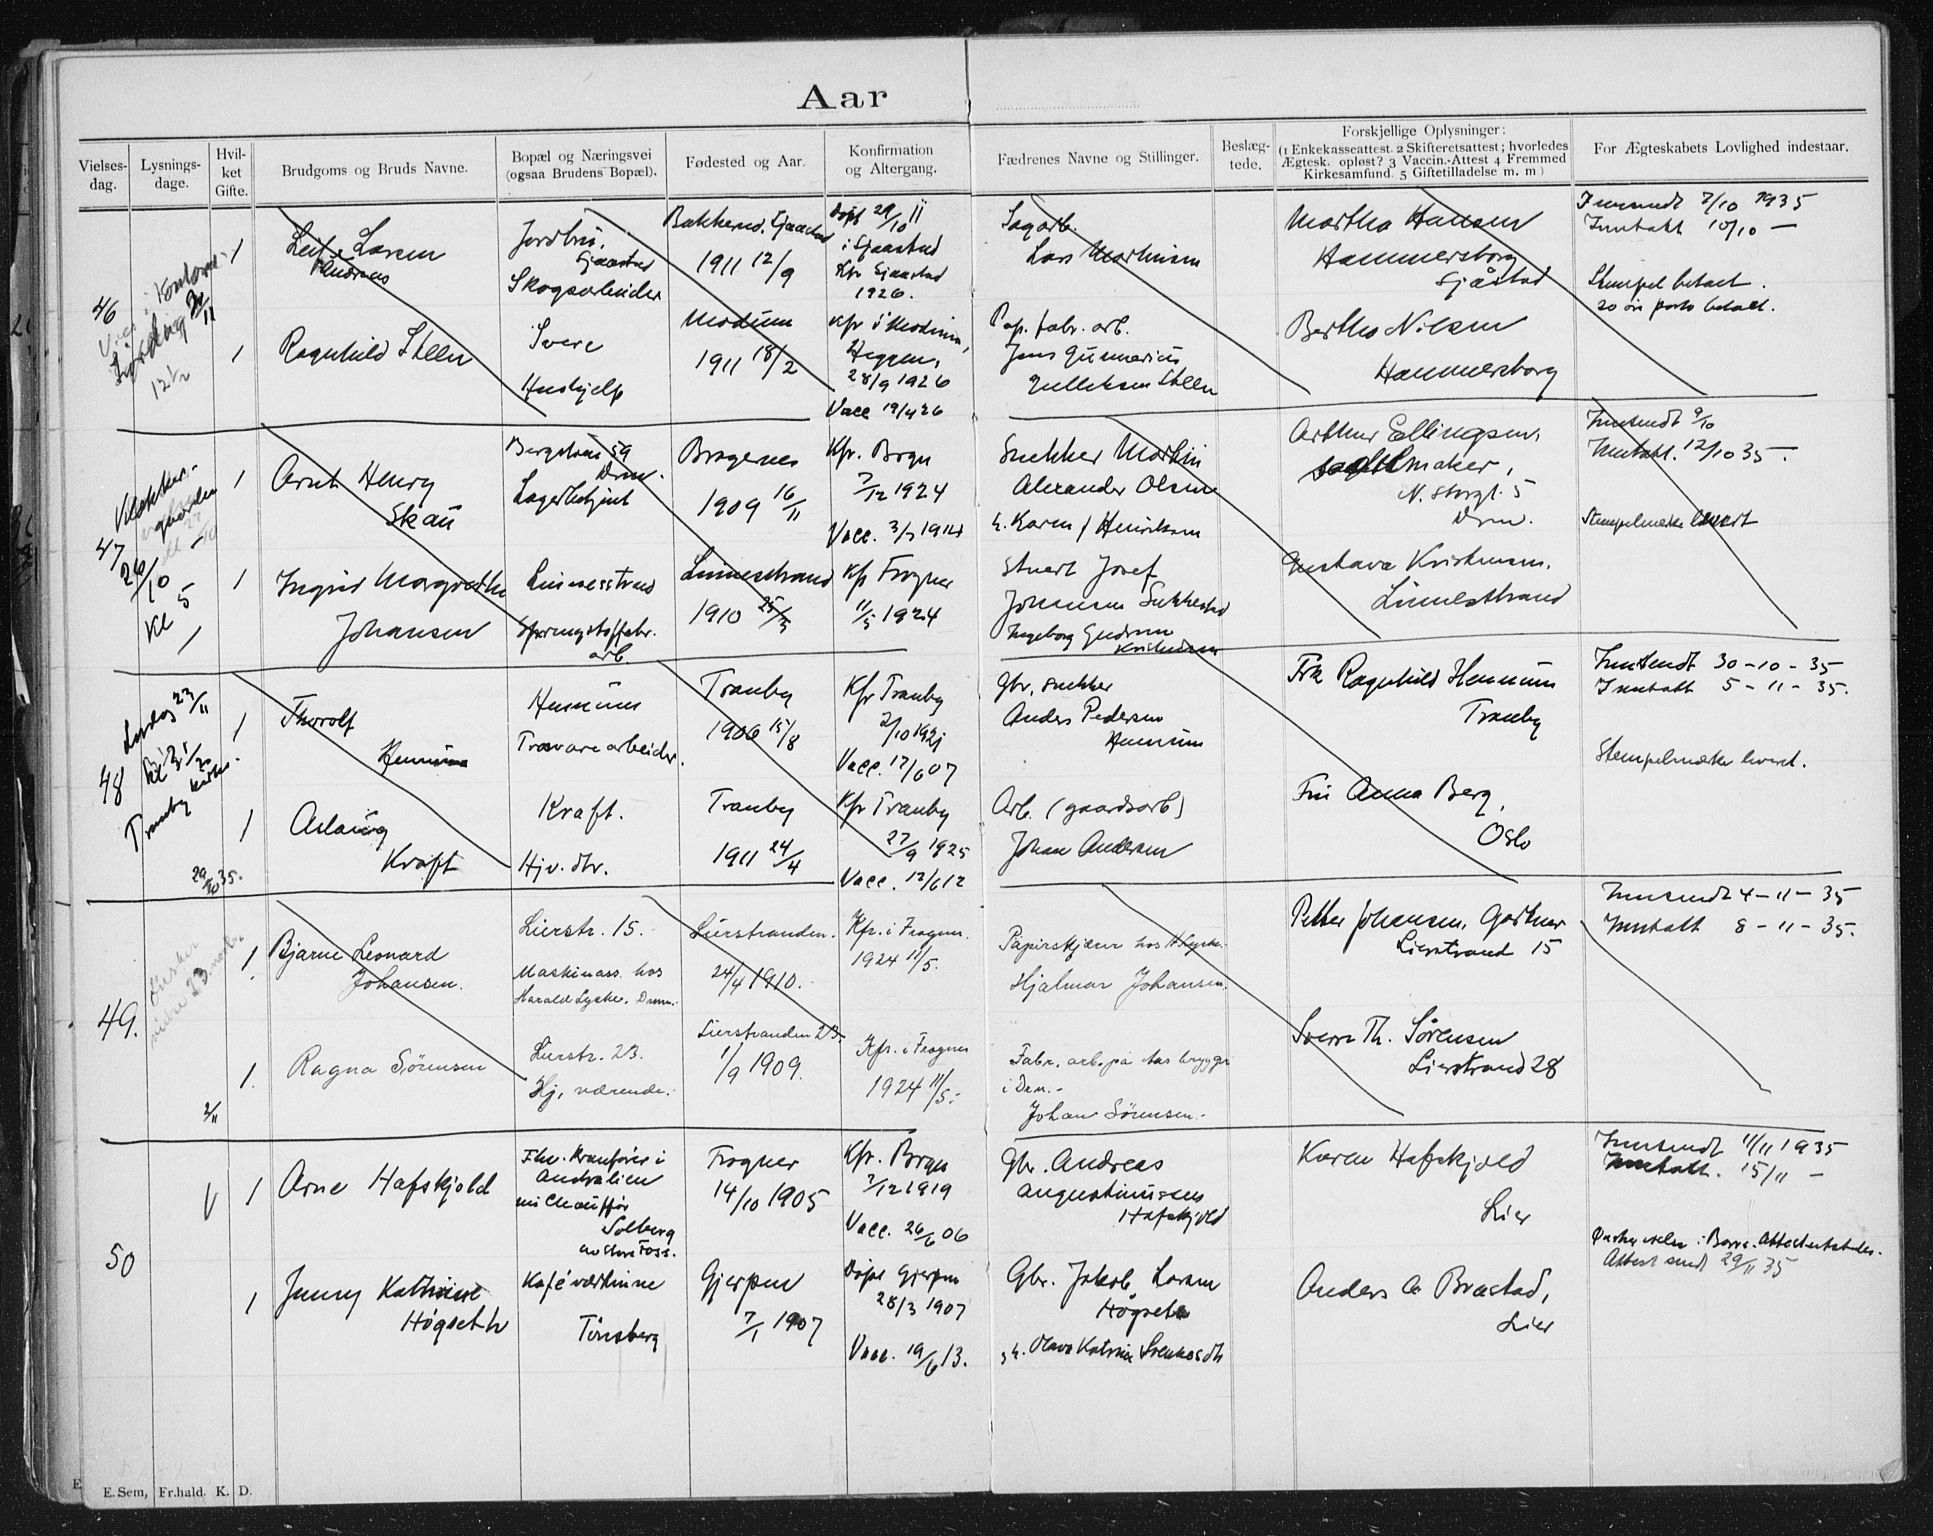 Aar
Vielses-
dag.
Lysnings-
dage.
Hvil-
ket
Gifte.
Brudgoms og Bruds Navne.
Bopæl og Næringsvei
(ogsaa Brudens Bopæl).
Fødested og Aar.
Konfirmation
og Altergang.
Fædrenes Navne og Stillinger.
Beslæg-
tede.
Forskjellige Oplysninger:
(1 Enkekasseattest. 2 Skifteretsattest; hvorledes
Ægtesk. opløst? 3 Vaccin.-Attest 4 Fremmed
Kirkesamfund. 5 Giftetilladelse m. m.)
For Ægteskabets Lovlighed indestaar.
46
Lørdag
1
Leif Larsen
Andreas
Gjaastad
Skogsarbeider
Bakkerud, Gjaastad
1911 12/9
Døpt 29/10 11
i Gjaastad
Kfr Gjaastad
1926.
Sagarb.
Lars Martinsen
Martha Hansen
Hammersborg
Gjåstad
Innsendt 7/10 1935
Inntatt 10/10 —
Stempel betalt.
20 øre porto betalt.
1
Ragnhild Steen
Svere
Hushjelp
Modum
1911 18/2
Kfr i Modum,
Heggen,
28/9 1926
Vacc 19/4 26
Pap. fabr. arb.
Jens Gunnerius
Gulliksen Steen
Bertha Nilsen
Hammersborg
47
26/10
Kl 5
1
Arnt Henry
Skau
Bergstien 59
Drm.
Lagerbetjent
Bragernes
1909 16/11
Kfr. Bragn
7/12 1924
Vacc. 3/7 1914
Snekker Martin
Alexander Olsen
h. Karen / Henriksen
Arthur Ellingsen,
N. Storgt. 5
Drm.
Innsendt 9/10
Inntatt. 12/10 35.—
Stempelmerke levert
1
Ingrid Margrethe
Johansen
Linnesstrand
Sprengstoffabr.
arb.
Linnesstrand
1910 25/3
Kfr Frogner
11/5 1924
Stuert Josef
Johansen Sukkestad
Ingeborg Gudrun
Kristensen
Gustava Kristensen.
Linnesstrand
48
Lørdag 23/11
Tranby kirke.
1
Thorolf
Hennum
Hennum
Trævarearbeider.
Tranby
1906 15/8
Kfr Tranby
2/10 1921
Vacc. 17/6 07
Gbr, snekker
Anders Pedersen
Hennum
Frk Ragnhild Hennum
Tranby
Innsendt 30-10-35
Inntatt 5-11-35.
Stempelmerke levert.
1
Aslaug
Kraft
Kraft.
Hjv. dtr.
Tranby
1911 24/4
Kfr Tranby
27/9 1925
Vacc. 12/6 12
Arb. (gaardsarb)
Johan Andersen
Fru Anna Berg,
Oslo
29/10 35.
49.
1.
Bjarne Leonard
Johansen.
Lierstr. 15.
Maskinass. hos
Harald Lyche. Dramm.
Lierstranden.
24/4 1910.
Kfr. i Frogner.
1924 11/5.
Papirskjærer hos H. Lyche.
Hjalmar Johansen.
Petter Johansen, Gartner
Lierstrand 15
Innsendt 4-11-35
Inntatt 8-11-35.
1.
Ragna Sørensen
Lierstr. 23.
Hj. værende.
Lierstranden 23
1/9 1909.
Kfr. i Frogner
1924 11/5.
Fabr. arb. på Aas brygger
i Drm.
Johan Sørensen.
Sverre Th. Sørensen
Lierstrand 28
2/11
50
1
Arne Hafskjold
Fhv. Kranfører i
Australien
nu Chauffør
Solberg
Frogner
14/10 1905
Kfr. Bragn
7/12 1919
Vacc. 26/6 06
Gbr. Andreas
Augustinussen
Hafskjold
Karen Hafskjold
Lier
Innsendt 11/11 1935
Inntatt. 15/11 —
Attest sendt 29/11 35
1
Jenny Katrine
Høgseth
Kafévertinne
Tønsberg
Gjerpen
7/1 1907
Døpt Gjerpen
28/3 1907
Vacc. 19/6 13.
Gbr. Jakob Larsen
Høgseth
h. Olava Katrine
Anders A Brastad,
Lier
E. Sem, Fr.hald. K. D.